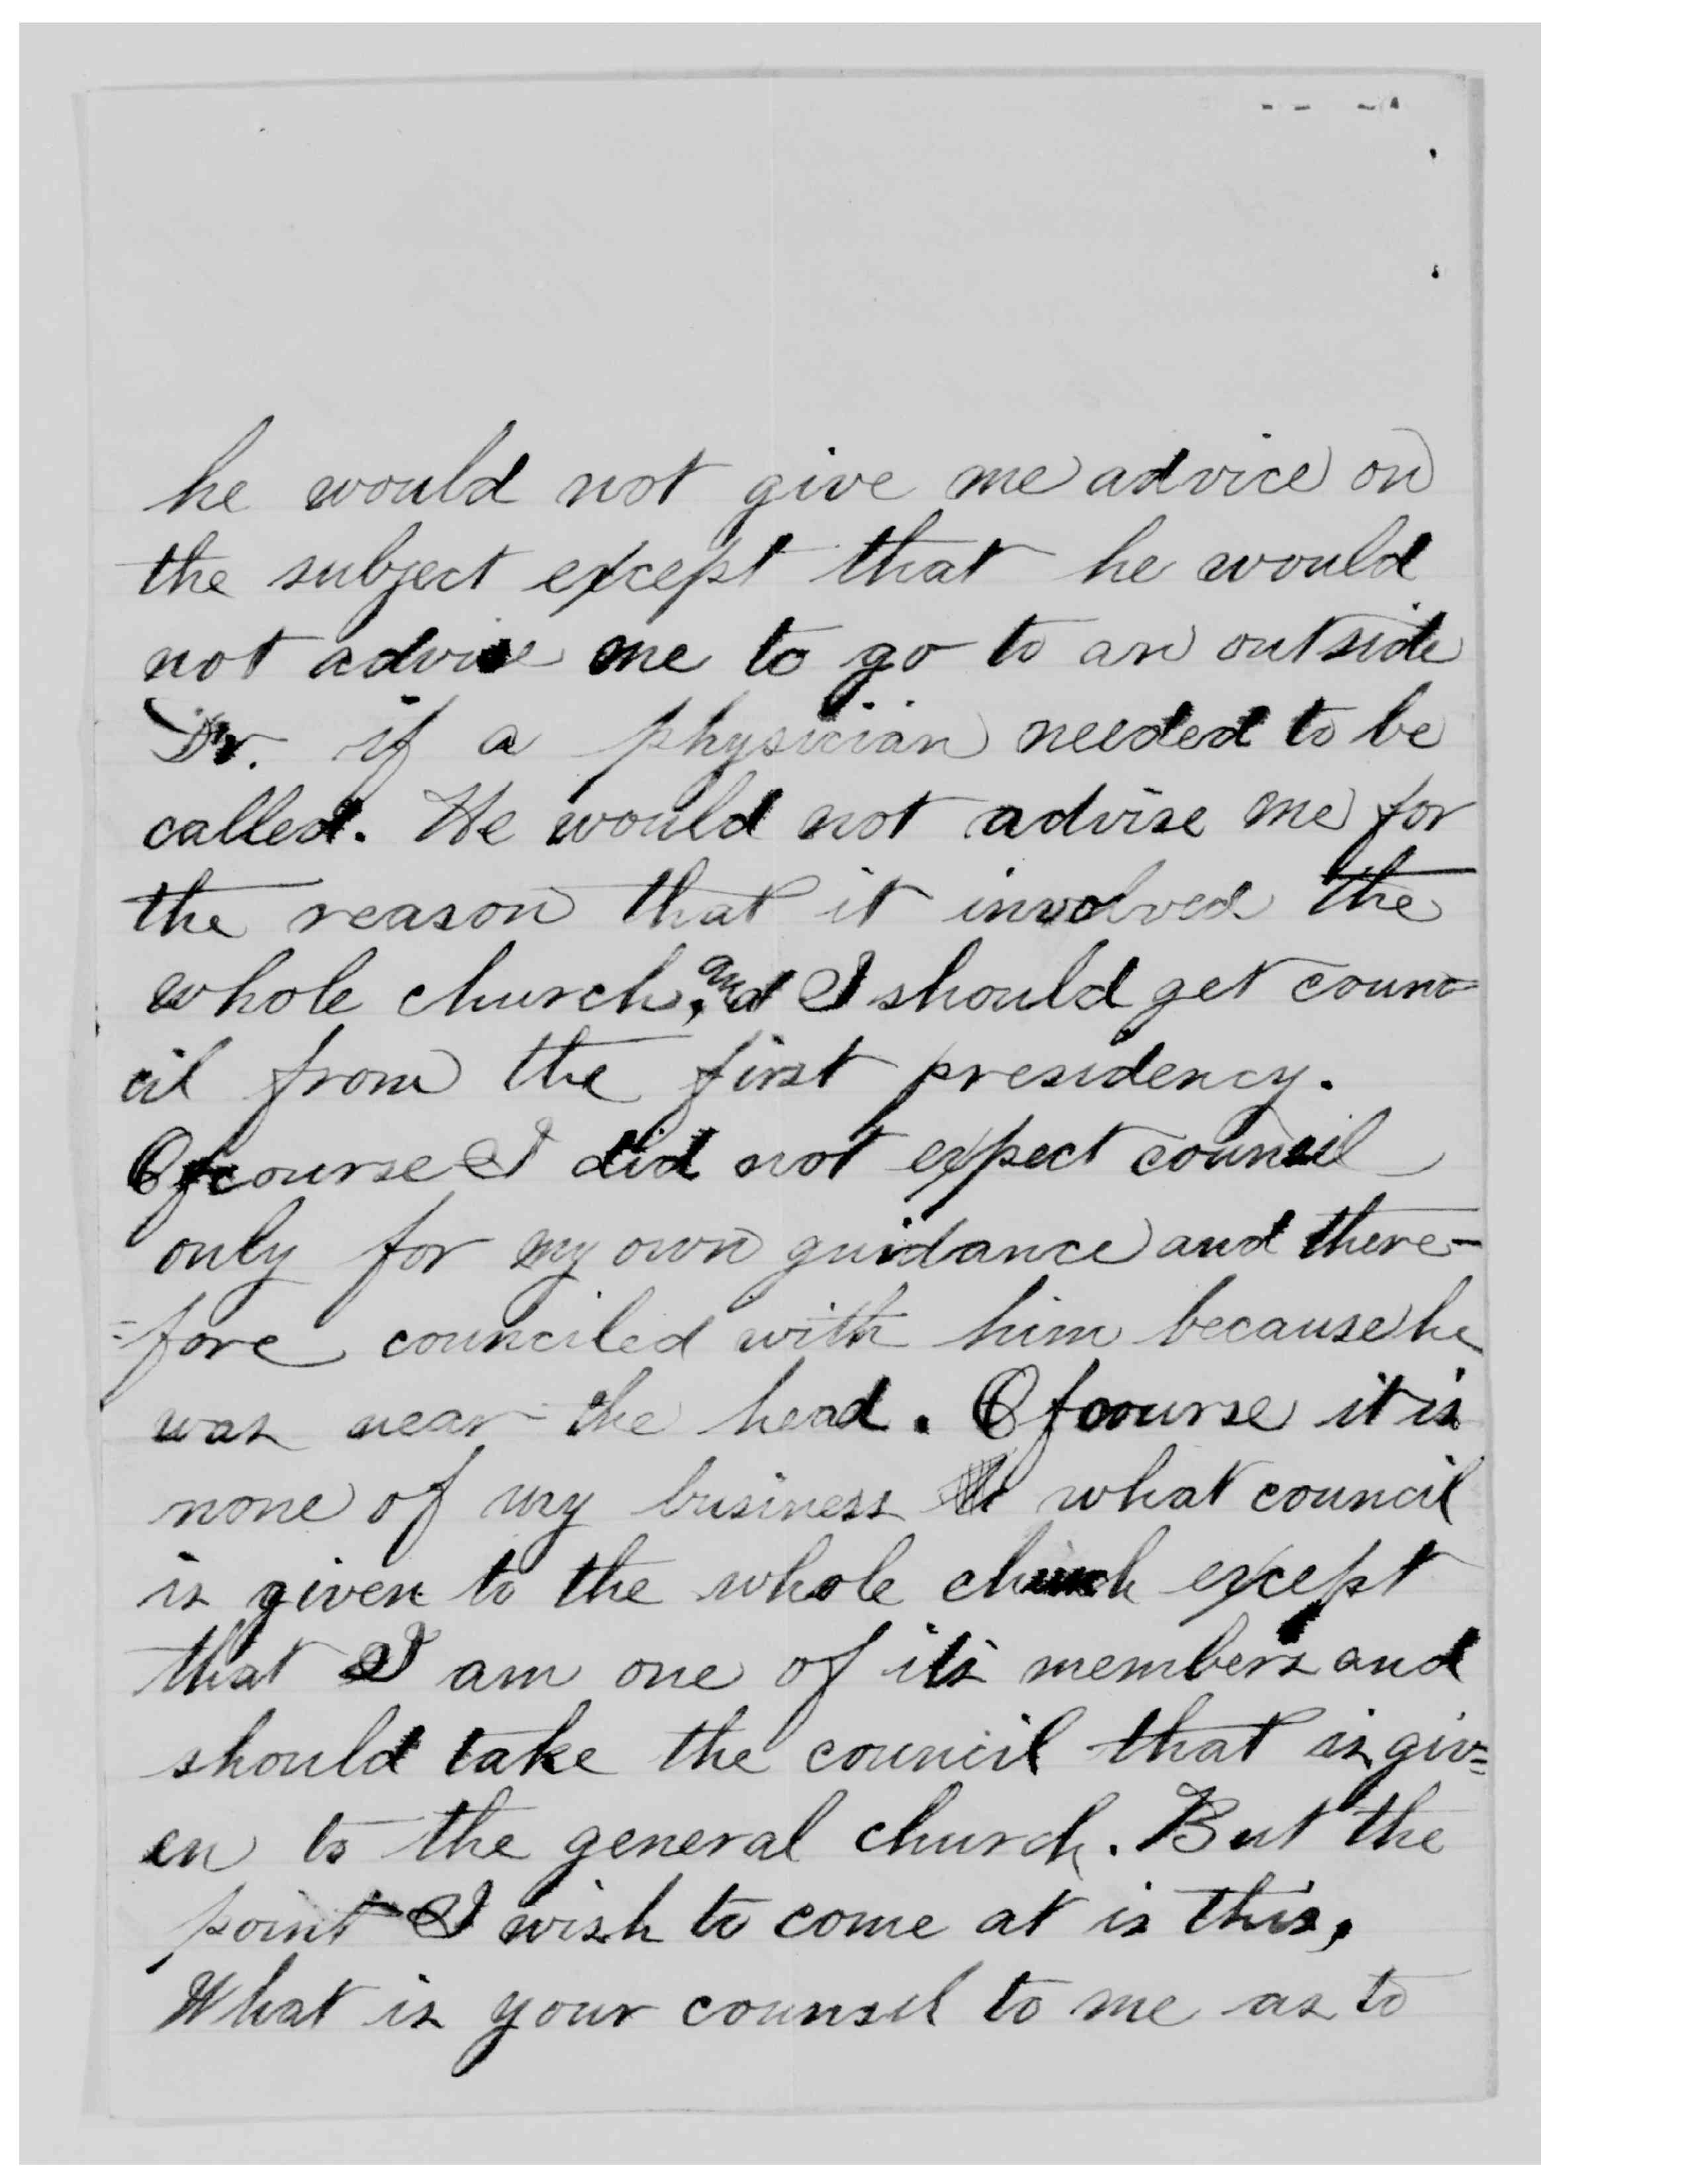 he would not give me advice on
the subject except that he would
not advise me to go to an outside
Dr. if a physician needed to be
called. He would not advise me for
the reason that it involved the
whole church, and I should get coun-
cil from the first presidency.
Of course I did not expect council
only for my own guidance and there-
=fore counciled with him because he
was near the head. Of course it is
none of my business what council
is given to the whole church except
that I am one of its members and
should take the council that is giv=
en to the general church. But the
point I wish to come at is this,
What is your counsel to me as to